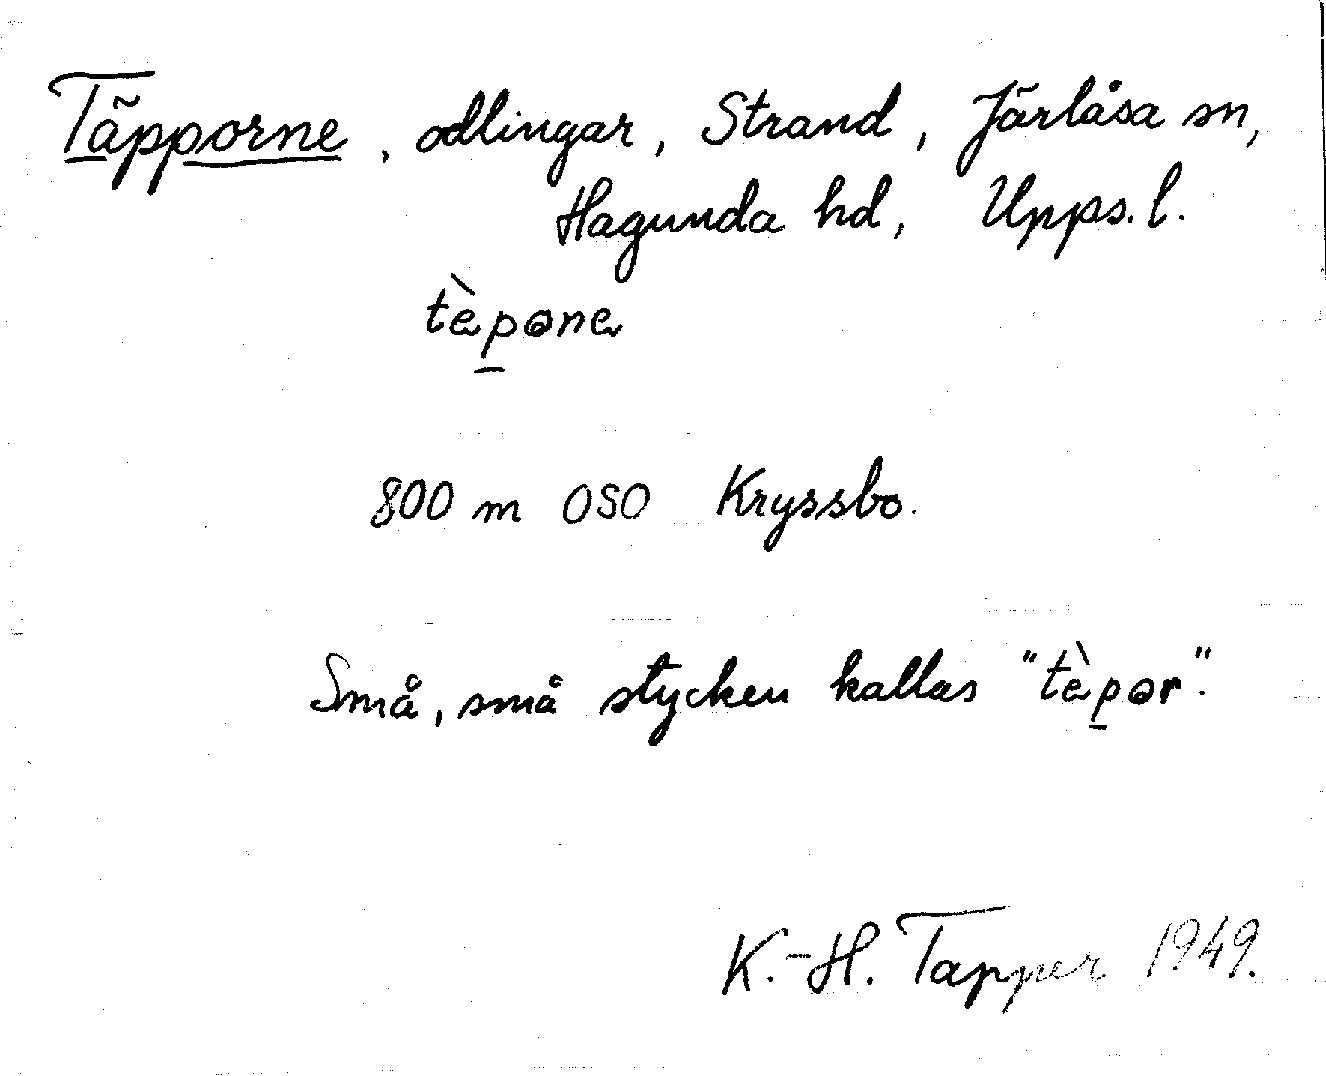 Täpporne, odlingar, Strand, Järlåsa sn,
Hagunda hd, Upps. l.
tè̱pǝne
800 m OSO Kryssbo.
Små, små stycken kallas "tèp̱ǝr".
K.-H. Tapper 1949.